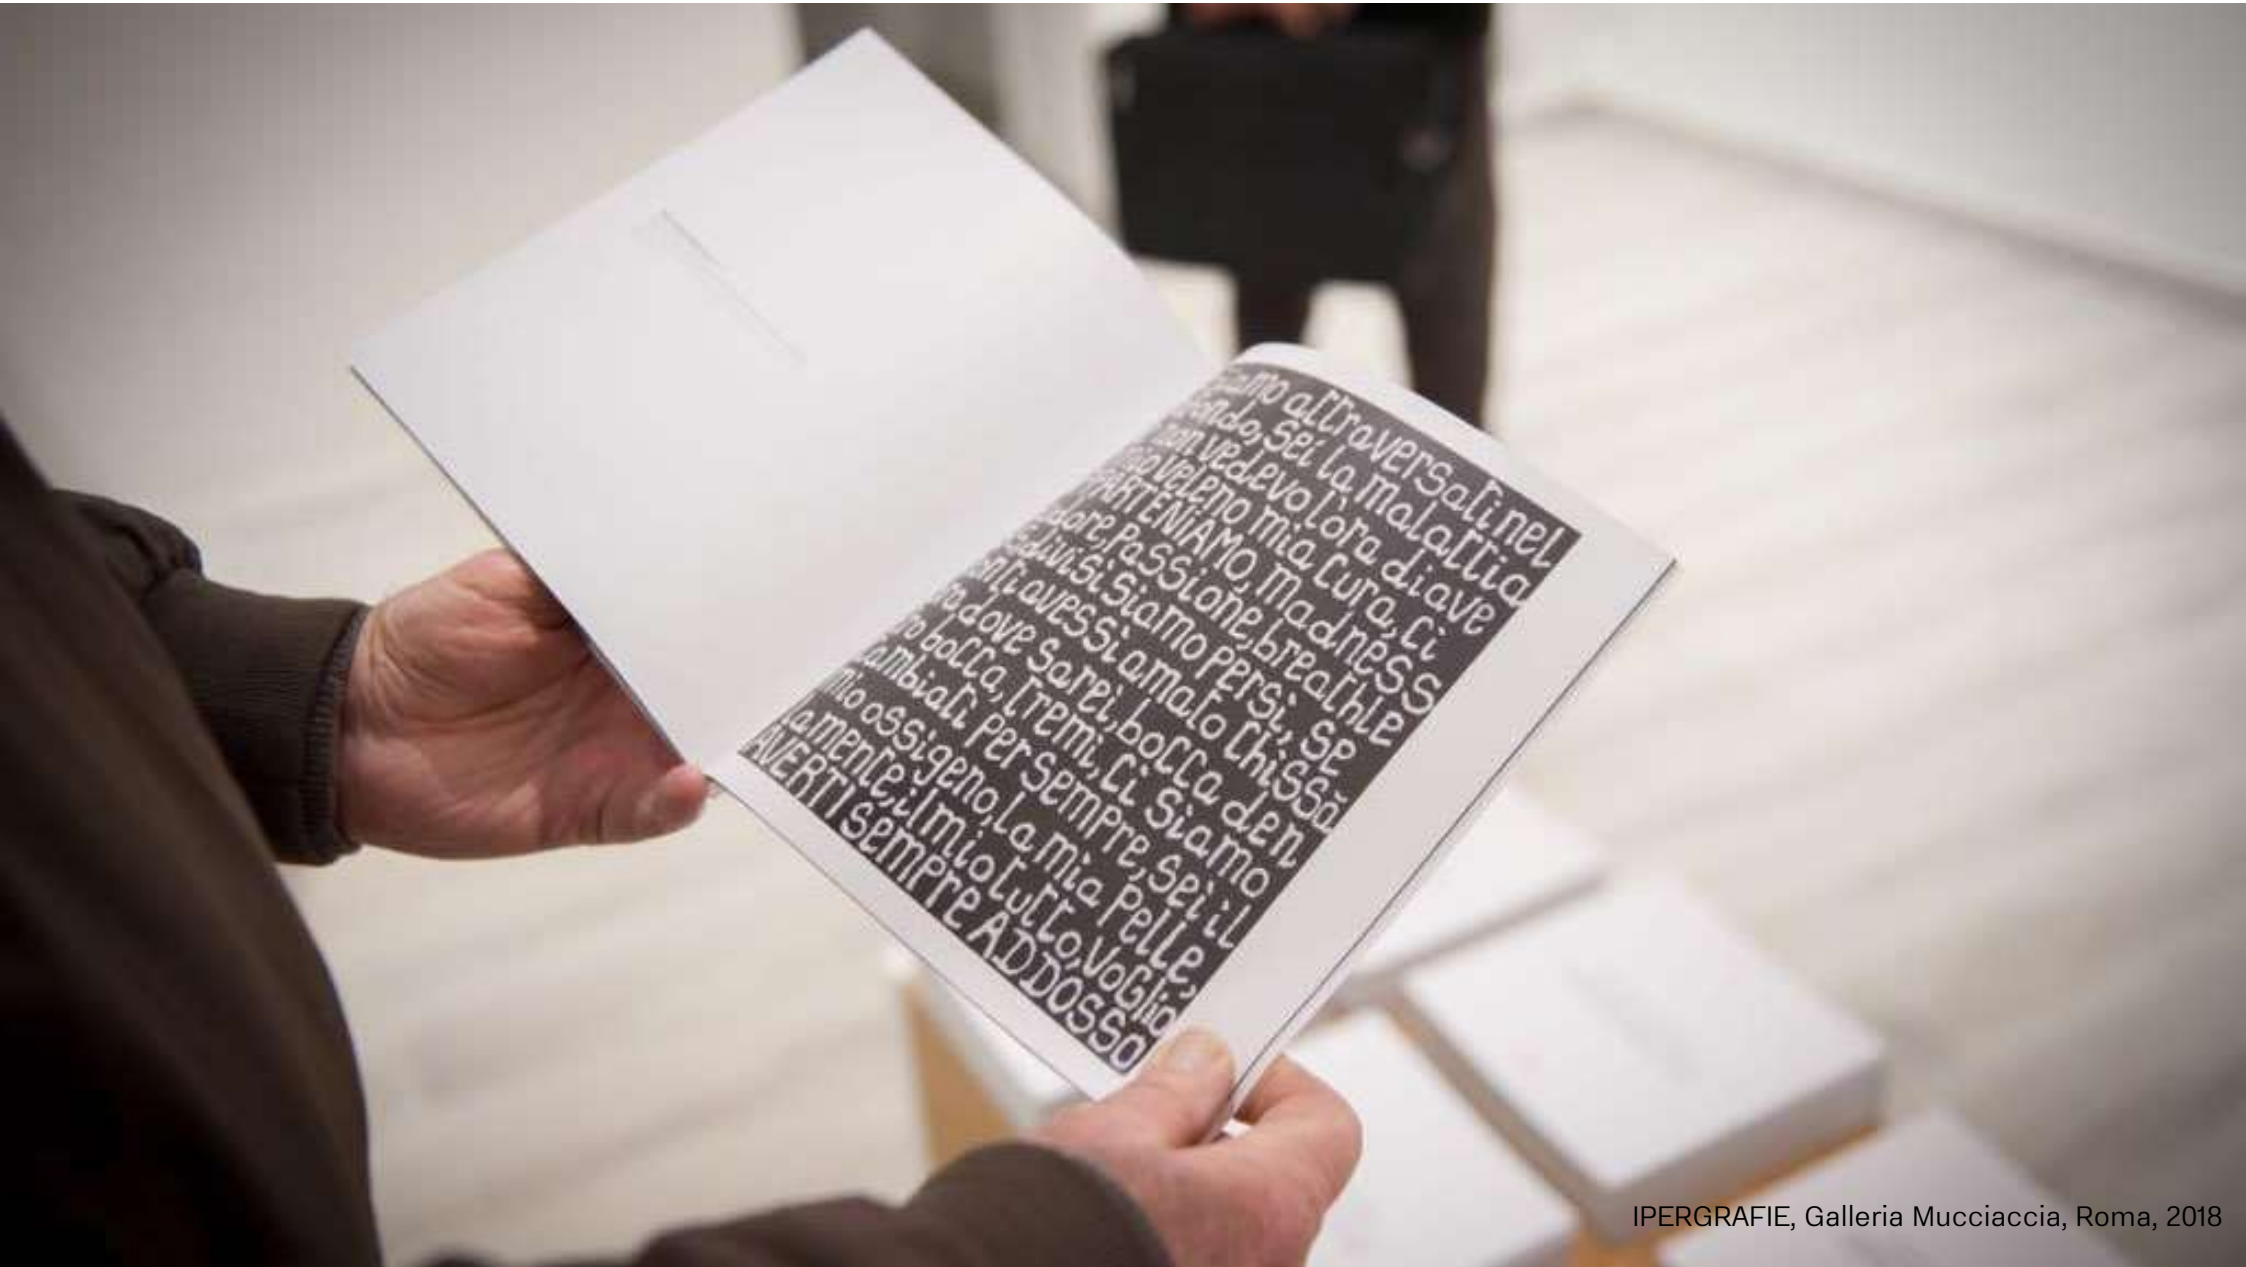 amo attraversati nel
ondo, sei la malattia
non vedevo l'ora di ave
mio veleno mia cura, ci
PPARTENiAMO, madness
passione, breathle
divisi siamo persi, se
avessi amato chissà
dove sarei, bocca den
ro bocca, tremi, ci siamo
ambiati per sempre, sei il
mio ossigeno, la mia pelle,
la mente, il mio tutto, voglio
AVERTI SEMPRE ADDOSSO
IPERGRAFIE, Galleria Mucciaccia, Roma, 2018